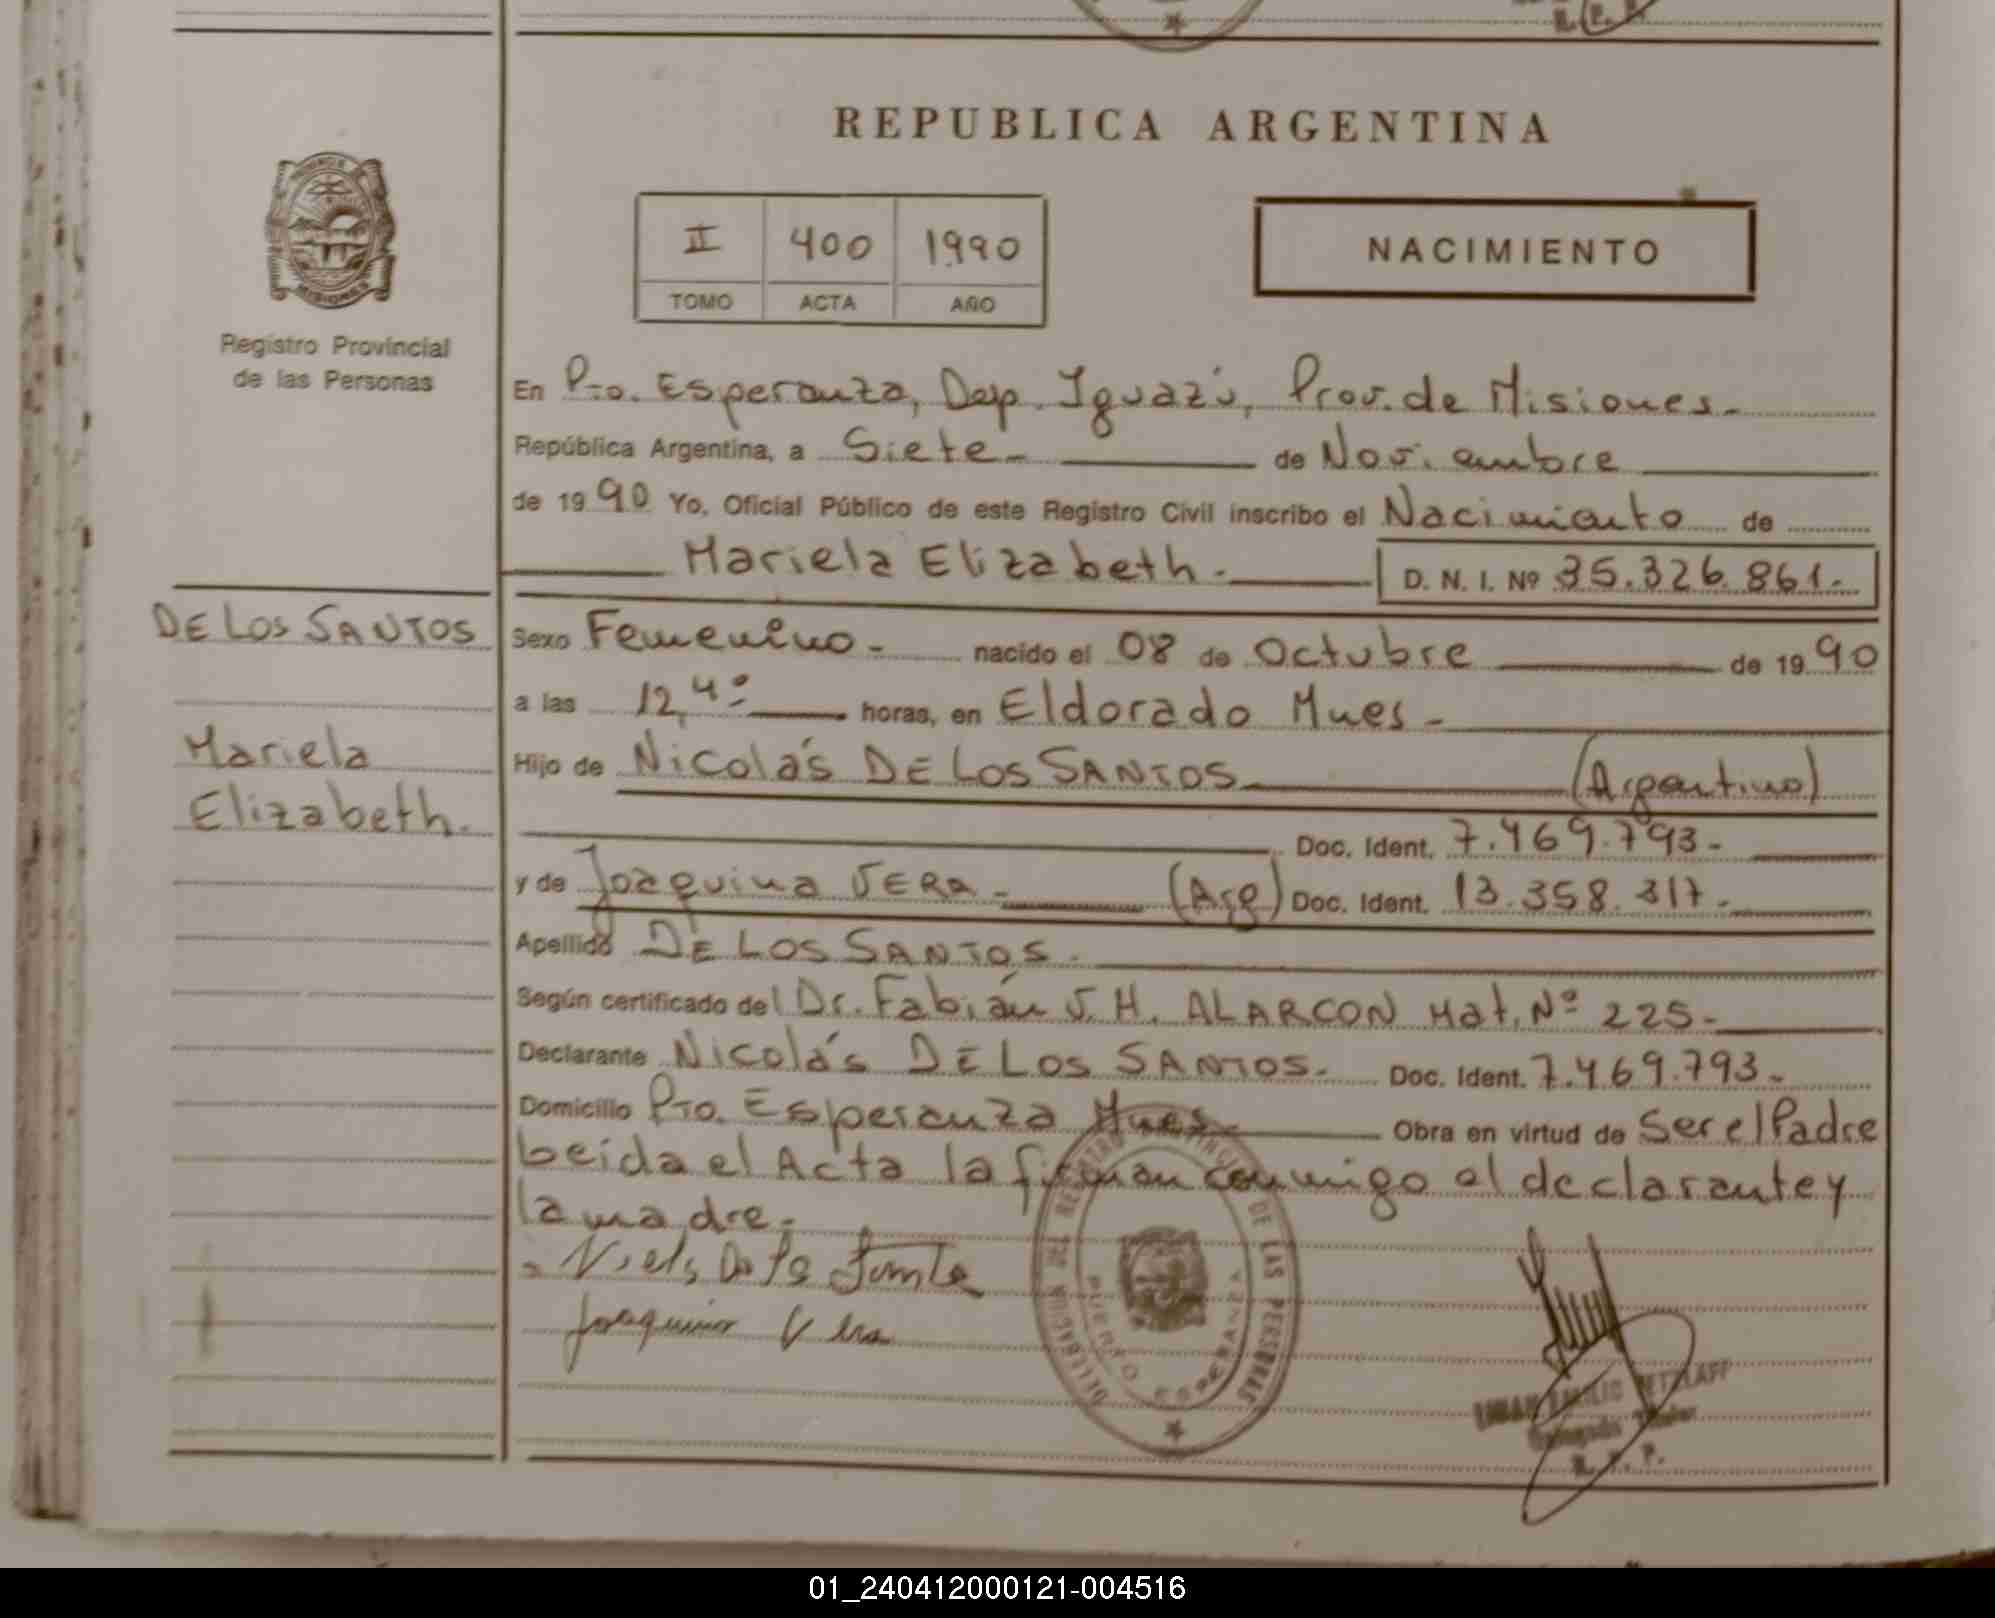 REPUBLICA ARGENTINA
II 400 1990
TOMO ACTA AÑO
NACIMIENTO
Registro Provincial
de las Personas
En Pto. Esperanza, Dep. Iguazú, Prov. de Misiones.-
República Argentina, a Siete.- de Noviembre
de 1990 Yo, Oficial Público de este Registro Civil inscribo el Nacimiento de
Mariela Elizabeth.- D. N. I. Nº 35.326.861.-
DE LOS SANTOS
Mariela
Elizabeth.
Sexo Femenino.- nacido el 08 de Octubre de 1990
a las 12,40 horas, en Eldorado Mnes.-
Hijo de Nicolás DE LOS SANTOS (Argentino)
Doc. Ident. 7.469.793.-
y de Joaquina VERA.- (Arg) Doc. Ident. 13.358.317.-
Apellido DE LOS SANTOS.
Según certificado del Dr. Fabián J. H. ALARCON Mat. Nº 225.-
Declarante Nicolás DE LOS SANTOS.- Doc. Ident. 7.469.793.-
Domicilio Pto. Esperanza Mnes.- Obra en virtud de Ser el Padre
Leida el Acta la firman conmigo el declarante y
la madre.-
Joaquina Vera
DELEGACION DEL REGISTRO PROVINCIAL DE LAS PERSONAS
PUERTO ESPERANZA
EMILIO
Delegado Titular
R. P. P.
01_240412000121-004516